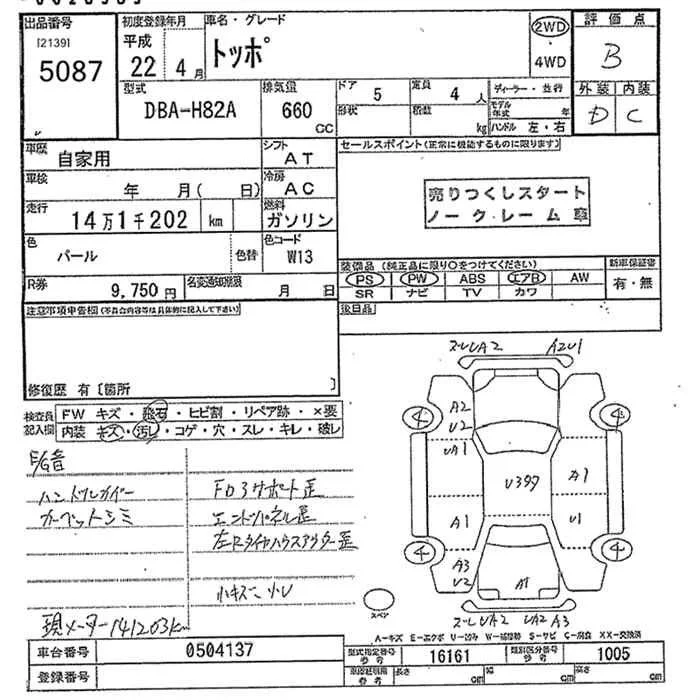 出品番号
[21391
5087
初度登録年月
平成
22 年 4 月
車名・グレード
トッポ
2WD
・
4WD
評価点
B
外装 内装
D C
型式
DBA-H82A
排気量
660
CC
ドア 5
形状
定員 4 人
積数 kg
ディーラー・並行
モデル年式 年
ハンドル 左・右
車歴
自家用
シフト
AT
車検
年 月( 日)
冷房
AC
走行
14万1千202 km
燃料
ガソリン
色
パール
色替
色コード
W13
R券
9,750円
名変通知期限
月 日
セールスポイント(正常に機能するものに限ります)
売りつくしスタート
ノークレーム車
装備品(純正品に限り○をつけてください)
PS PW ABS エアB AW
SR ナビ TV カワ
新車保証書
有・無
後日品
注意事項申告欄(不具合内容等は具体的に記入して下さい)
修復歴 有〔箇所 〕
検査員
記入欄
FW キズ・飛石・ヒビ割・リペア跡・×要
内装 キズ・汚レ・コゲ・穴・スレ・キレ・破レ
E/G音
ハンドルカバー
カーペットシミ
FD3サポート歪
エンドパネル歪
左Rタイヤハウスアウター歪
小キズ・小U
現メーター141203km
ズレUA2 A2U1
A2
U2
UA1
A1
A3
U2
U399
A1
U1
A1
4 4
4 4
ズレUA2 UA2 A3
スペア
A―キズ E―エクボ U―凹み W―補修跡 S―サビ C―腐食 XX―交換済
車台番号
0504137
登録番号
型式指定番号
参考
16161
類別区分番号
参考
1005
車積寸法
参考
長さ
cm
幅
cm
高さ
cm